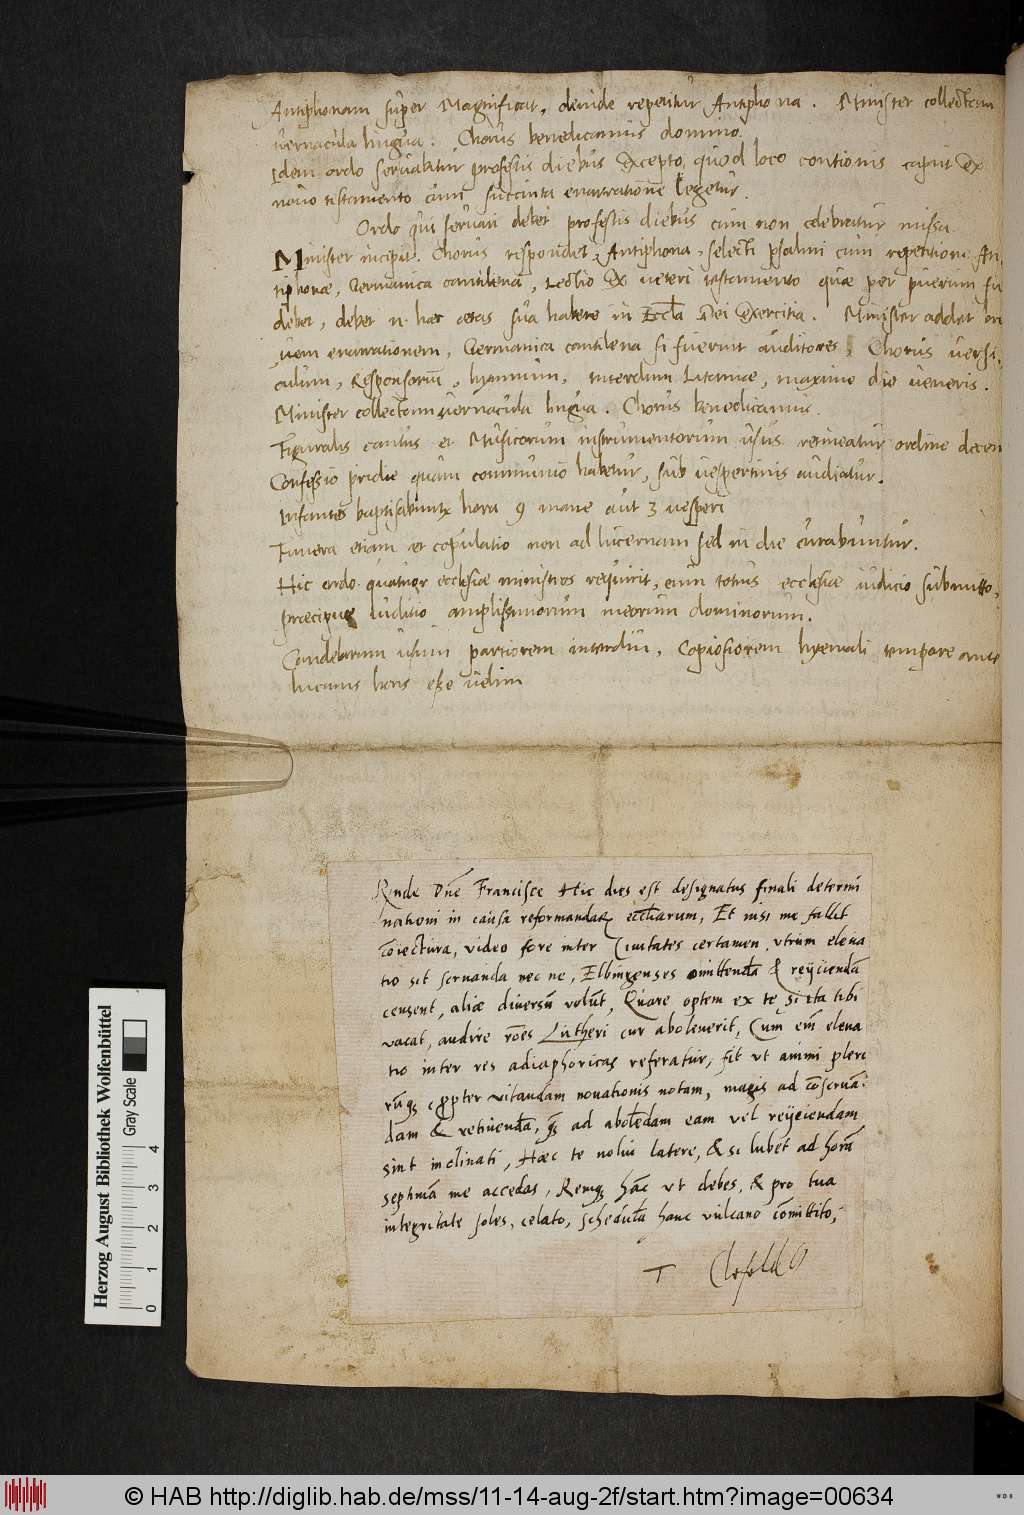 Antiphonam super Magnificat, deinde repetitur Antiphona. Minister collectam
vernacula lingua. Chorus benedicamus domino.
Idem ordo servabitur profestis diebus excepto, quod loco contionis caput ex
novo testamento cum succinta enarratione legetur.
Ordo qui servari debet profestis diebus cum non celebratur missa.
Minister incipit. Chorus respondet, Antiphona, selecti psalmi cum repetitione An
tiphonæ, Germanica cantilena, Lectio ex veteri testamento quæ per puerum fi
debet, debet n. hæc ætas sua habere in Eccła Dei exercitia. Minister addat
enarrationem, Germanica cantilena si fuerint auditores, Chorus versi,
culum, Responsoriū, hymnum, interdum Litaniæ, maxime die veneris.
Minister collectam vernacula lingua. Chorus benedicamus.
Figuralis cantus et Musicorum instrumentorum usus retineatur ordine decen
Confessio pridie quam communio habetur, sub vespertinis audiatur.
Infantes baptisabuntr hora 9 mane aut 3 vesperi
Funera etiam et copulatio non ad lucernam sed in die curabuntur.
Hic ordo quatuor ecclesiæ ministros requirit, eum totius ecclesiæ iudicio submitto,
præcipue iuditio amplissimorum meorum dominorum.
Candelarum usum partiorem interdiu, Copiosiorem hyemali tempore ante
lucanis horis esse velim
Rnde Dn̄e Francisce Hic dies est designatus finali determi
nationi in causa reformandaꝝ eccłiarum, Et nisi me fallit
cōiectura, video fore inter Civitates certamen, utrum eleva
tio sit servanda nec ne, Elbingenses omittendā & reijciendā
censent, aliæ diversū volūt, Quare optem ex te, si ita tibi
vacat, audire rōes Lutheri cur aboleverit, Cum em̄ eleva
tio inter res adiaphoricas referatur, fit ut animi pleri
rūqꝫ propter vitandam novationis notam, magis ad cōservā-
dam & retinendā, qꝫ ad abolēdam eam vel reijciendam
sint inclinati, Hæc te nolui latere, & si lubet ad horā
septimā me accedas, Remqꝫ hāc ut debes, & pro tua
integritate soles, celato, schedulā hanc vulcano cōmittito,
T Clefeld
Herzog August Bibliothek Wolfenbüttel
Gray Scale
0 1 2 3 4
© HAB http://diglib.hab.de/mss/11-14-aug-2f/start.htm?image=00634